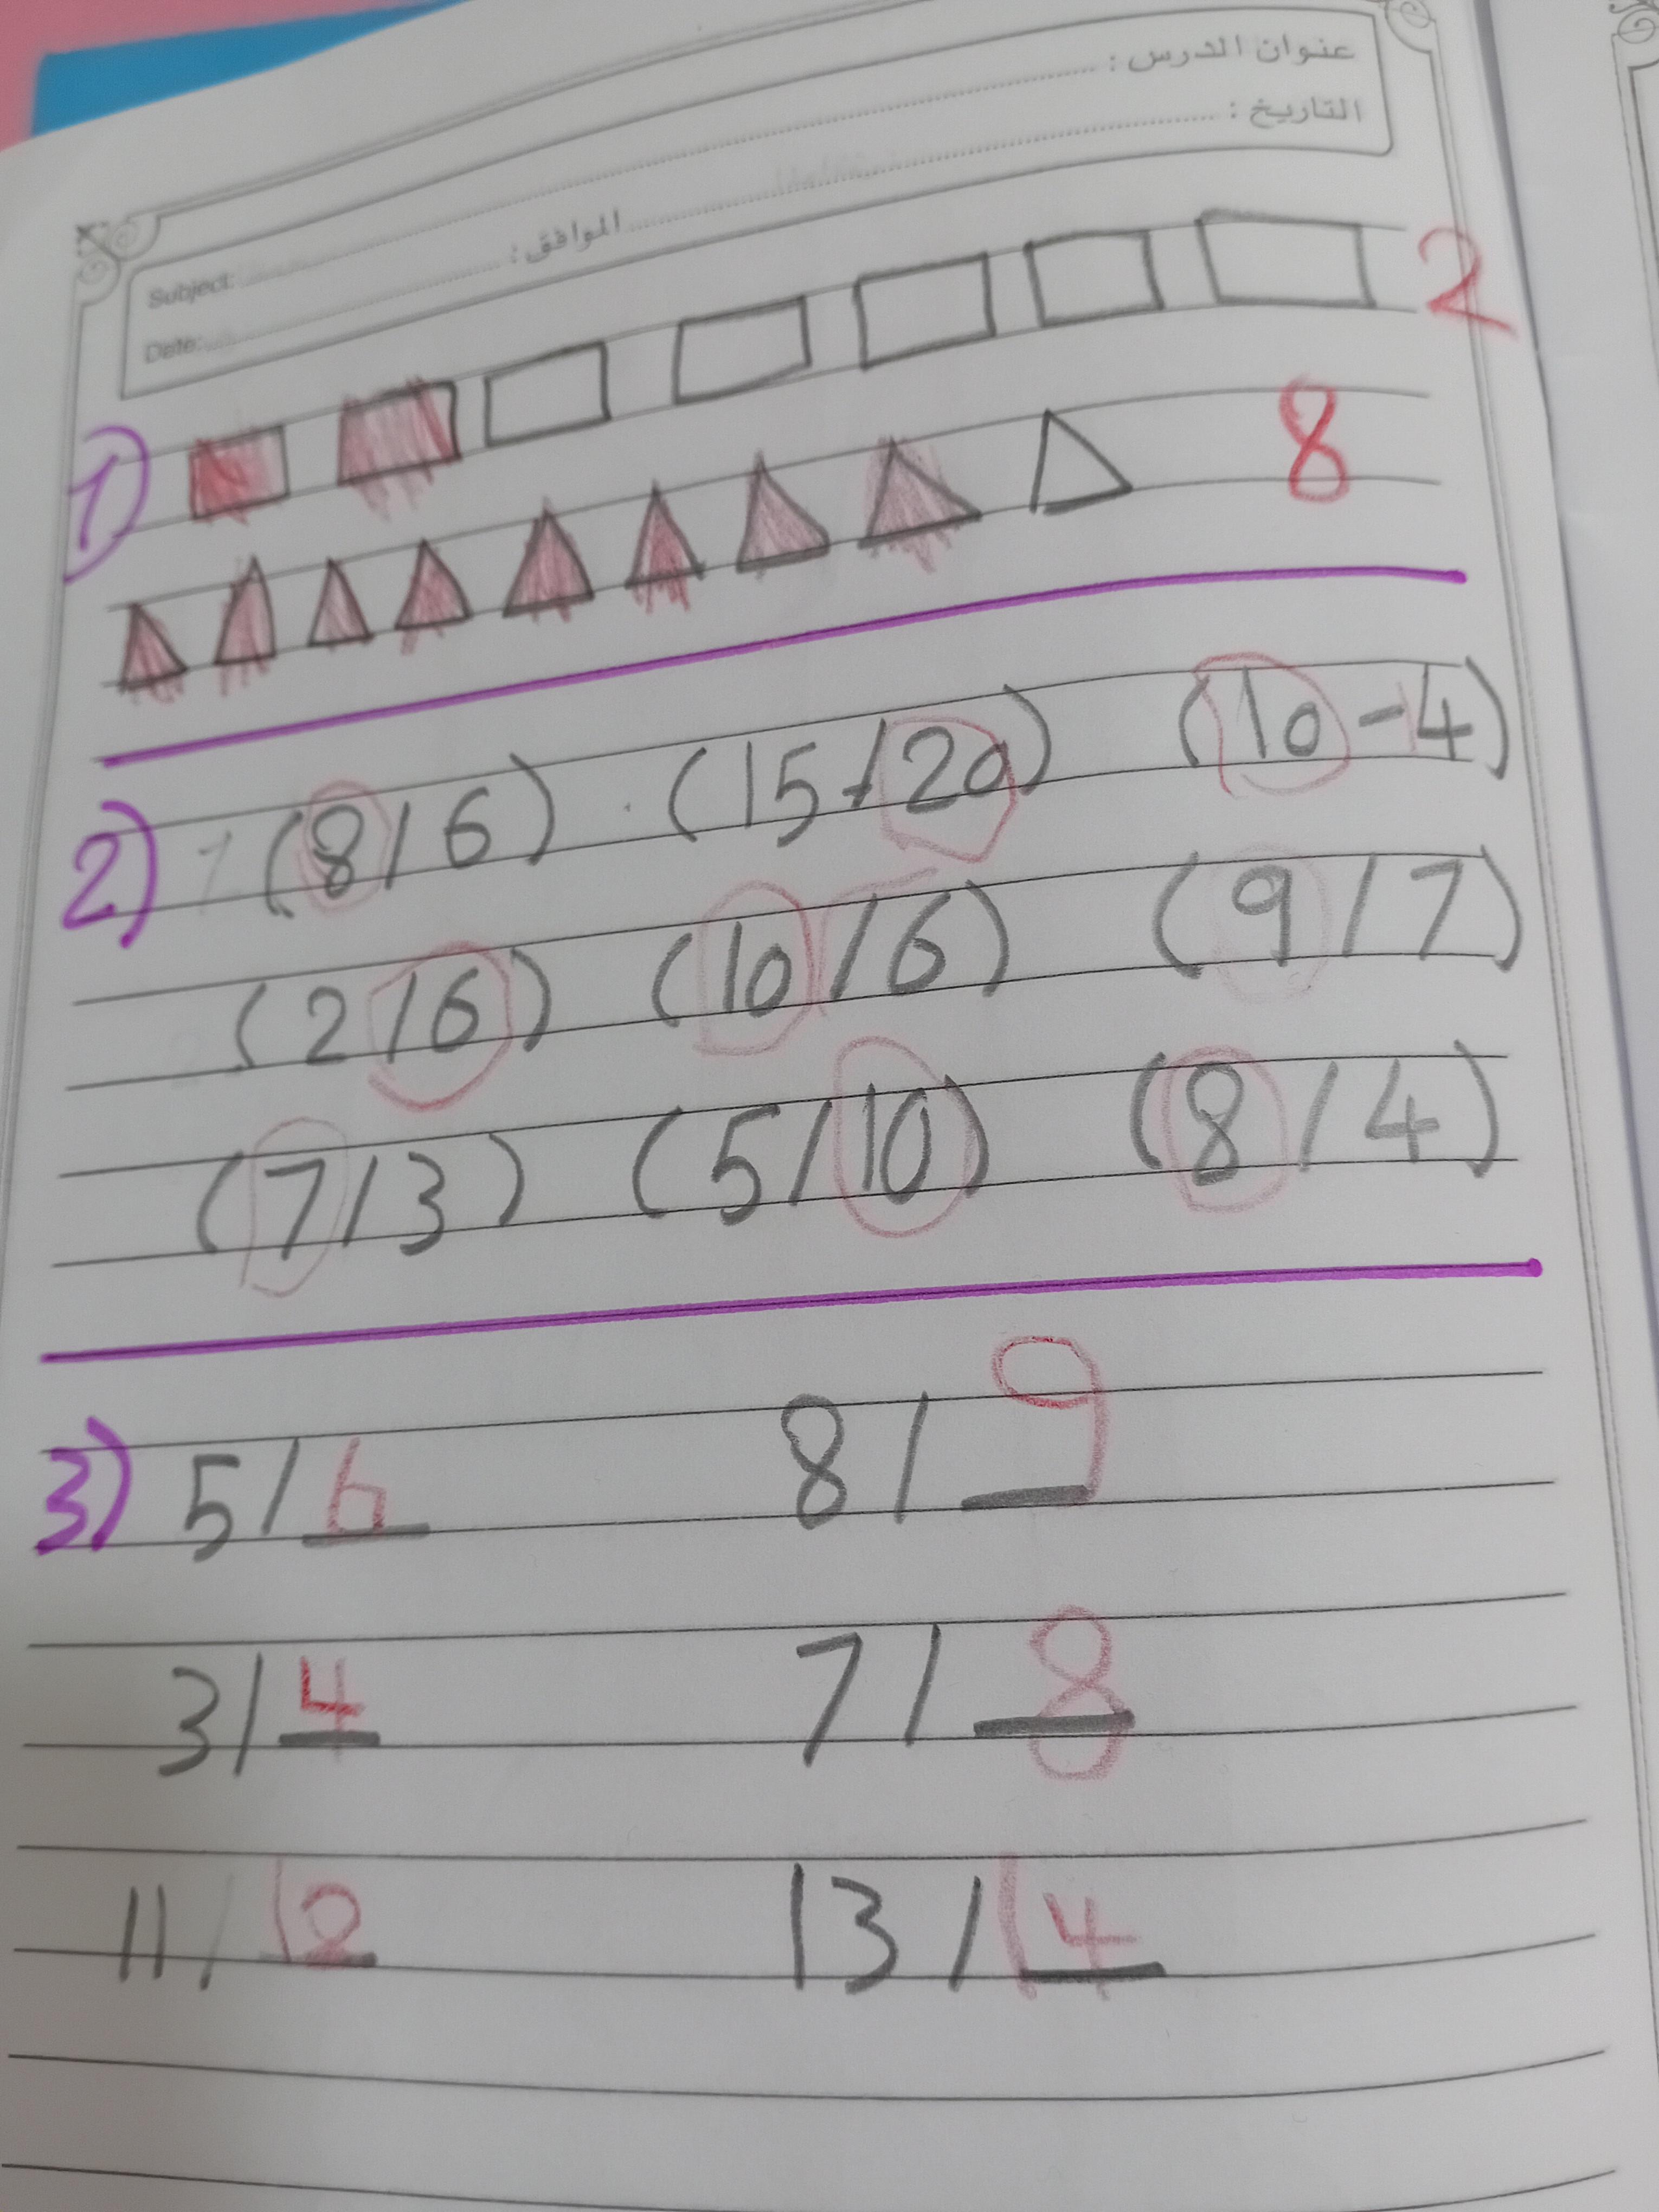 عنوان الدرس :
التاريخ :
Subject:
الموافق :
Date:
1
2
8
2) (8/6) (15/20) (10-4)
(2/6) (10/6) (9/7)
(7/3) (5/10) (8/4)
3) 5/6 8/9
3/4 7/8
11/12 13/14